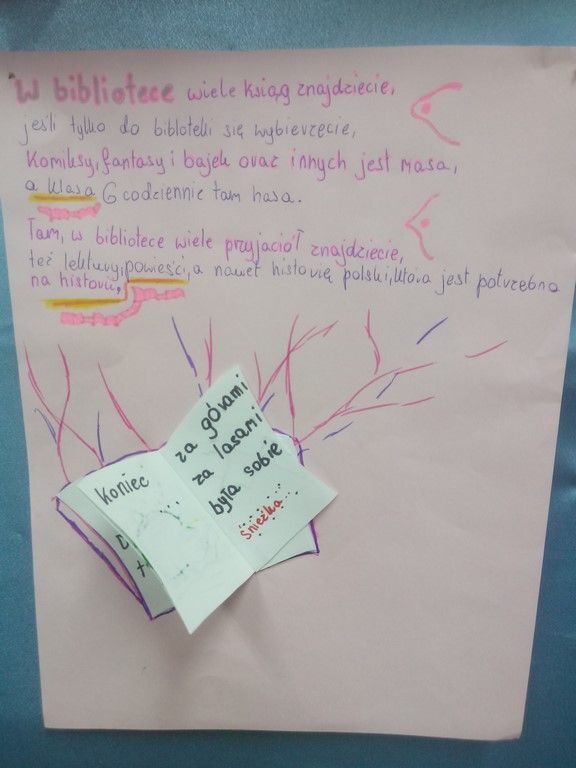 W bibliotece wiele ksiąg znajdziecie,
jeśli tylko do biblioteki się wybierzecie,
Komiksy, fantasy i bajek oraz innych jest masa,
a klasa 6 codziennie tam hasa.
Tam, w bibliotece wiele przyjaciół znajdziecie,
też lektury, powieści, a nawet historię polski, która jest potrzebna
na historii,
Koniec
za górami
za lasami
była sobie
śnieżka